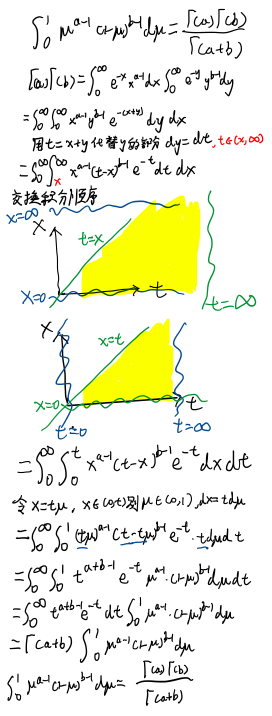 ∫₀¹ μᵃ⁻¹(1-μ)ᵇ⁻¹dμ = Γ(a)Γ(b)/Γ(a+b)
Γ(a)Γ(b) = ∫₀^∞ e⁻ˣxᵃ⁻¹dx ∫₀^∞ e⁻ʸyᵇ⁻¹dy
= ∫₀^∞∫₀^∞ xᵃ⁻¹yᵇ⁻¹ e^-(x+y) dy dx
用t=x+y代替y的积分 dy=dt, t∈(x,∞)
= ∫₀^∞∫ₓ^∞ xᵃ⁻¹(t-x)ᵇ⁻¹ e⁻ᵗ dt dx
交换积分顺序
x=∞
x
t=x
x=0
t
t=∞
x
x=t
x=0
t
t=0
t=∞
= ∫₀^∞∫₀ᵗ xᵃ⁻¹(t-x)ᵇ⁻¹e⁻ᵗdxdt
令x=tμ, x∈(0,t)则μ∈(0,1), dx=tdμ
= ∫₀^∞∫₀¹ (tμ)ᵃ⁻¹(t-tμ)ᵇ⁻¹e⁻ᵗ·tdμdt
= ∫₀^∞∫₀¹ tᵃ⁺ᵇ⁻¹e⁻ᵗ μᵃ⁻¹·(1-μ)ᵇ⁻¹dμdt
= ∫₀^∞ tᵃ⁺ᵇ⁻¹e⁻ᵗdt ∫₀¹ μᵃ⁻¹·(1-μ)ᵇ⁻¹dμ
= Γ(a+b) ∫₀¹ μᵃ⁻¹(1-μ)ᵇ⁻¹dμ
∫₀¹ μᵃ⁻¹(1-μ)ᵇ⁻¹dμ = Γ(a)Γ(b)/Γ(a+b)